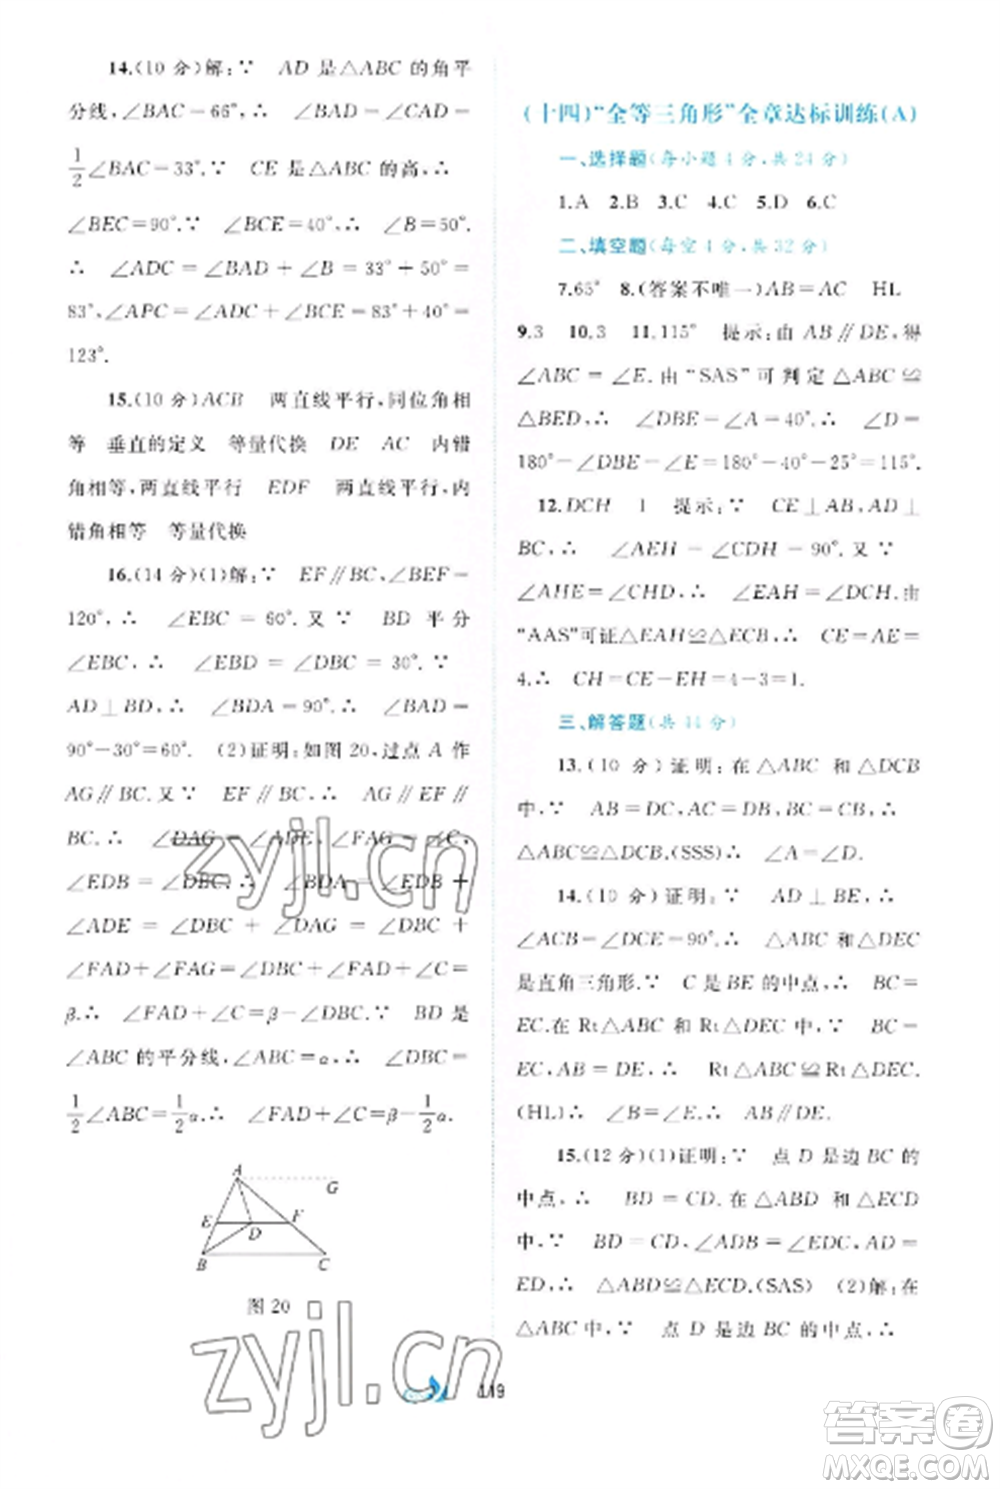 14.(10 分)解:∵ AD 是△ABC 的角平
分线,∠BAC=66°,∴ ∠BAD=∠CAD=
1/2∠BAC=33°.∵ CE 是△ABC 的高,∴
∠BEC=90°.∵ ∠BCE=40°,∴ ∠B=50°.
∴ ∠ADC=∠BAD+∠B=33°+50°=
83°,∠APC=∠ADC+∠BCE=83°+40°=
123°.
15.(10 分)ACB 两直线平行,同位角相
等 垂直的定义 等量代换 DE AC 内错
角相等,两直线平行 EDF 两直线平行,内
错角相等 等量代换
16.(14 分)(1)解:∵ EF∥BC,∠BEF=
120°,∴ ∠EBC=60°.又∵ BD 平分
∠EBC,∴ ∠EBD=∠DBC=30°.∵
AD⊥BD,∴ ∠BDA=90°.∴ ∠BAD=
90°-30°=60°. (2)证明:如图 20,过点 A 作
AG∥BC.又∵ EF∥BC,∴ AG∥EF∥
BC.∴ ∠DAG=∠ADE,∠FAG=∠C,
∠EDB=∠DBC.∴ ∠BDA=∠EDB+
∠ADE=∠DBC+∠DAG=∠DBC+
∠FAD+∠FAG=∠DBC+∠FAD+∠C=
β.∴ ∠FAD+∠C=β-∠DBC.∵ BD 是
∠ABC 的平分线,∠ABC=α,∴ ∠DBC=
1/2∠ABC=1/2α.∴ ∠FAD+∠C=β-1/2α.
A
G
E
F
D
B
C
图 20
(十四)“全等三角形”全章达标训练(A)
一、选择题(每小题 4 分,共 24 分)
1.A 2.B 3.C 4.C 5.D 6.C
二、填空题(每空 4 分,共 32 分)
7.65° 8.(答案不唯一)AB=AC HL
9.3 10.3 11.115° 提示:由 AB∥DE,得
∠ABC=∠E.由“SAS”可判定△ABC≌
△BED,∴ ∠DBE=∠A=40°.∴ ∠D=
180°-∠DBE-∠E=180°-40°-25°=115°.
12.DCH 1 提示:∵ CE⊥AB,AD⊥
BC,∴ ∠AEH=∠CDH=90°.又∵
∠AHE=∠CHD,∴ ∠EAH=∠DCH.由
“AAS”可证△EAH≌△ECB,∴ CE=AE=
4.∴ CH=CE-EH=4-3=1.
三、解答题(共 44 分)
13.(10 分)证明:在△ABC 和△DCB
中,∵ AB=DC,AC=DB,BC=CB,∴
△ABC≌△DCB.(SSS)∴ ∠A=∠D.
14.(10 分)证明:∵ AD⊥BE,∴
∠ACB=∠DCE=90°.∴ △ABC 和△DEC
是直角三角形.∵ C 是 BE 的中点,∴ BC=
EC.在 Rt△ABC 和 Rt△DEC 中,∵ BC=
EC,AB=DE,∴ Rt△ABC≌Rt△DEC.
(HL)∴ ∠B=∠E.∴ AB∥DE.
15.(12 分)(1)证明:∵ 点 D 是边 BC 的
中点,∴ BD=CD.在△ABD 和△ECD
中,∵ BD=CD,∠ADB=∠EDC,AD=
ED,∴ △ABD≌△ECD.(SAS) (2)解:在
△ABC 中,∵ 点 D 是边 BC 的中点,∴
119
zyjl.cn
zyjl.cn
答案圈
MXQE.COM